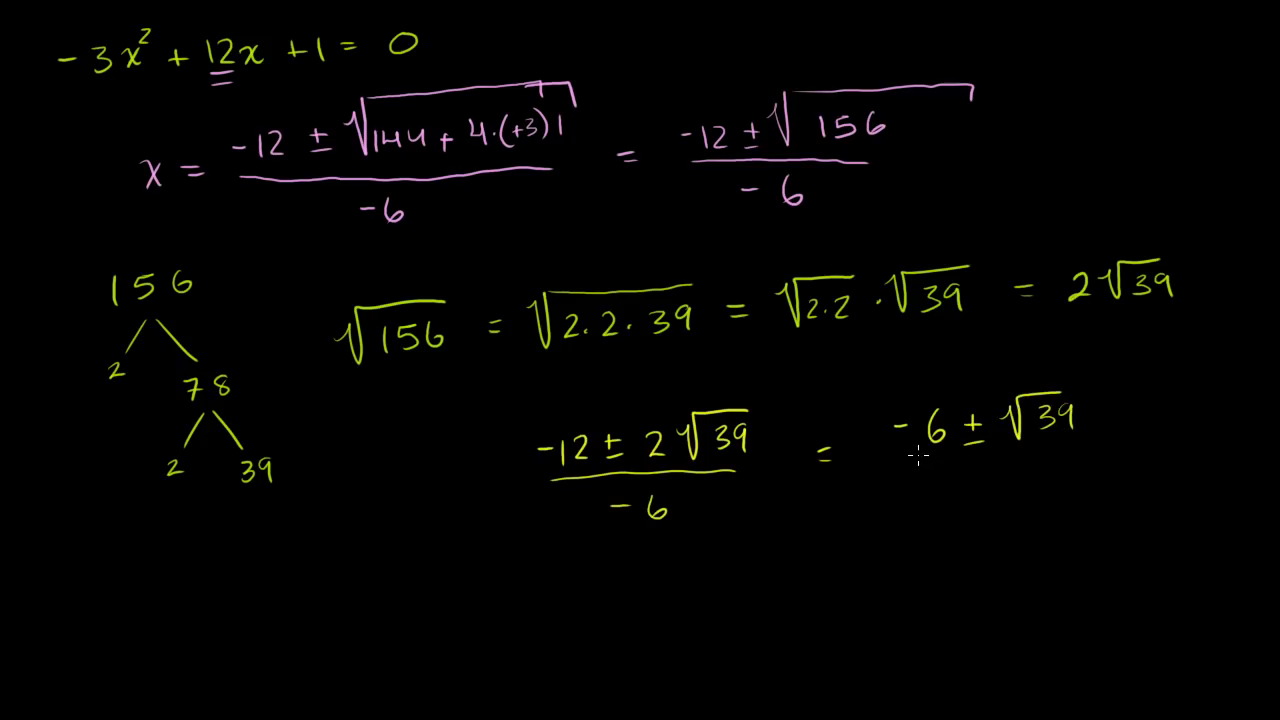 -3x² + 12x + 1 = 0
x = (-12 ± √(144 + 4·(+3)1)) / -6 = (-12 ± √156) / -6
156
√156 = √(2·2·39) = √(2·2) · √39 = 2√39
2 78
2 39
(-12 ± 2√39) / -6 = -6 ± √39